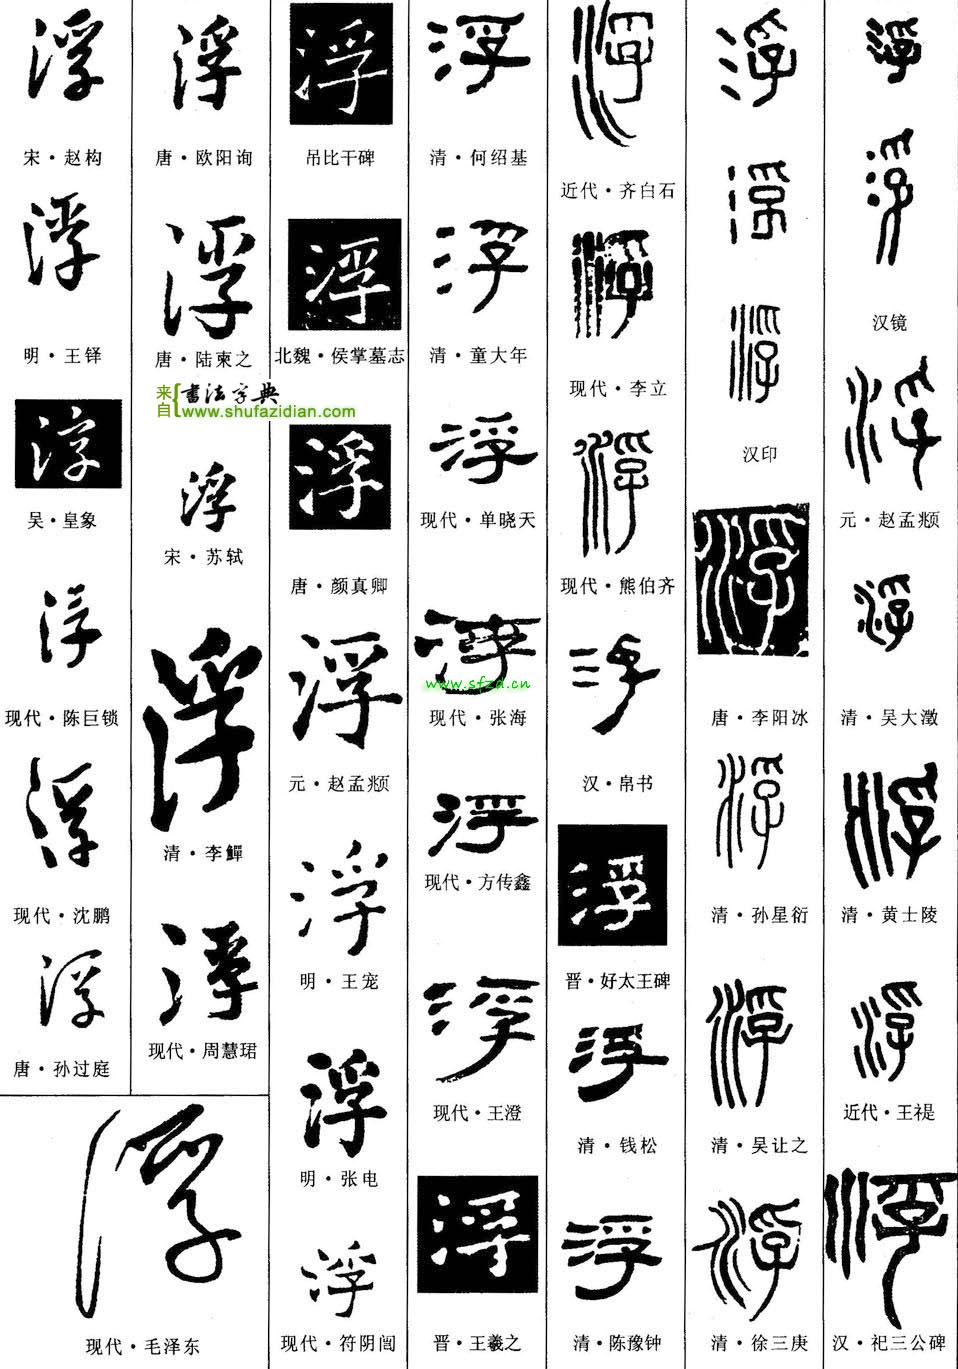 浮
宋·赵构
浮
明·王铎
浮
吴·皇象
浮
现代·陈巨锁
浮
现代·沈鹏
浮
唐·孙过庭
浮
现代·毛泽东
浮
唐·欧阳询
浮
唐·陆柬之
来自{书法字典
www.shufazidian.com
浮
宋·苏轼
浮
清·李鱓
浮
现代·周慧珺
浮
吊比干碑
浮
北魏·侯掌墓志
浮
唐·颜真卿
浮
元·赵孟頫
浮
明·王宠
浮
明·张电
浮
现代·符阴
浮
清·何绍基
浮
清·童大年
浮
现代·单晓天
浮
www.sfzd.cn
现代·张海
浮
现代·方传鑫
浮
现代·王澄
浮
晋·王羲之
浮
近代·齐白石
浮
现代·李立
浮
现代·熊伯齐
浮
汉·帛书
浮
晋·好太王碑
浮
清·钱松
浮
清·陈豫钟
浮
浮
浮
汉印
浮
唐·李阳冰
浮
清·孙星衍
浮
清·吴让之
浮
清·徐三庚
浮
浮
汉镜
浮
元·赵孟頫
浮
清·吴大澂
浮
清·黄士陵
浮
近代·王禔
浮
汉·祀三公碑